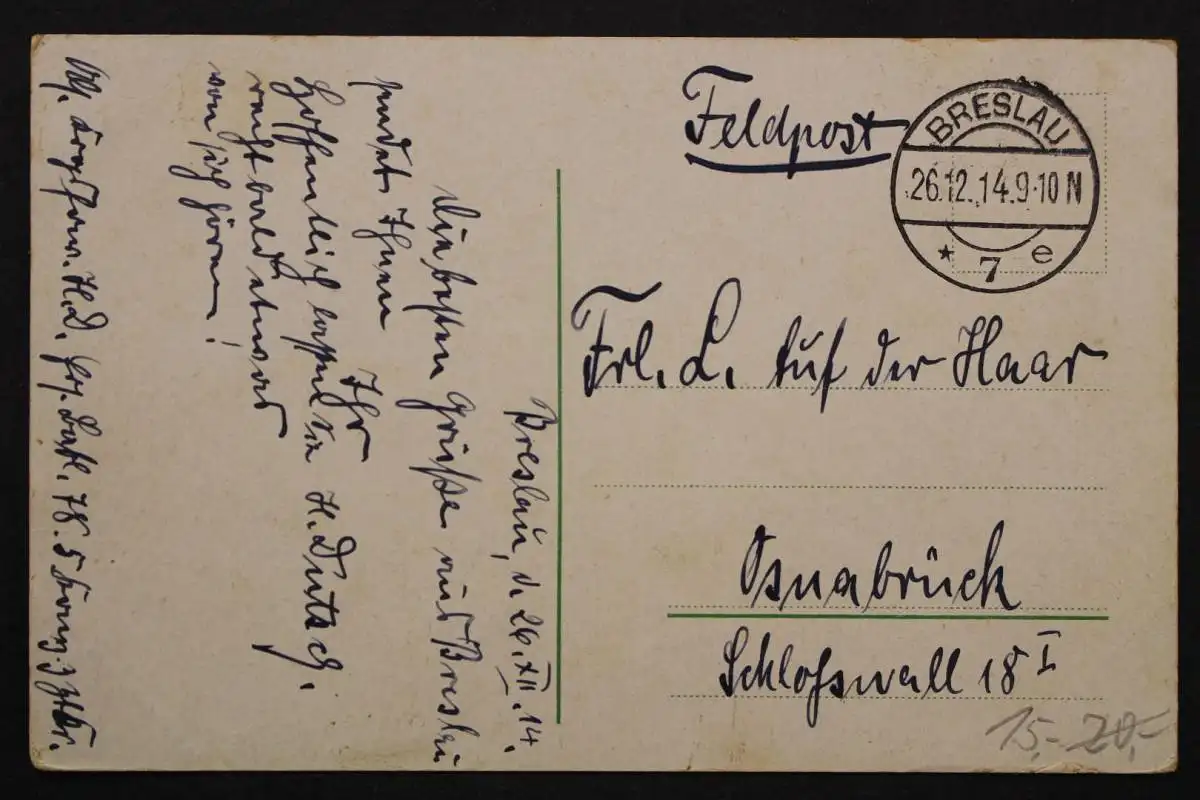 Feldpost
BRESLAU
26.12.14.9-10 N
* 7 e
Frl. L. auf der Haar
Osnabrück
Schloßwall 18 I
15,- 20,-
Breslau, d. 26. XII. 14.
Die besten Grüße aus Breslau
sendet Ihnen
Ihr H. Dutsch.
Hoffentlich lassen Sie
recht bald etwas
von sich hören!
H. D. 78. 5